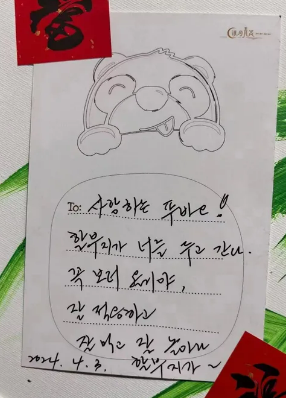 To: 사랑하는 푸바오!
할부지가 너를 두고 간다.
꼭 보러 올게야,
잘 적응하고
잘 먹고 잘 놀아라
2024. 4. 3. 할부지가 ~